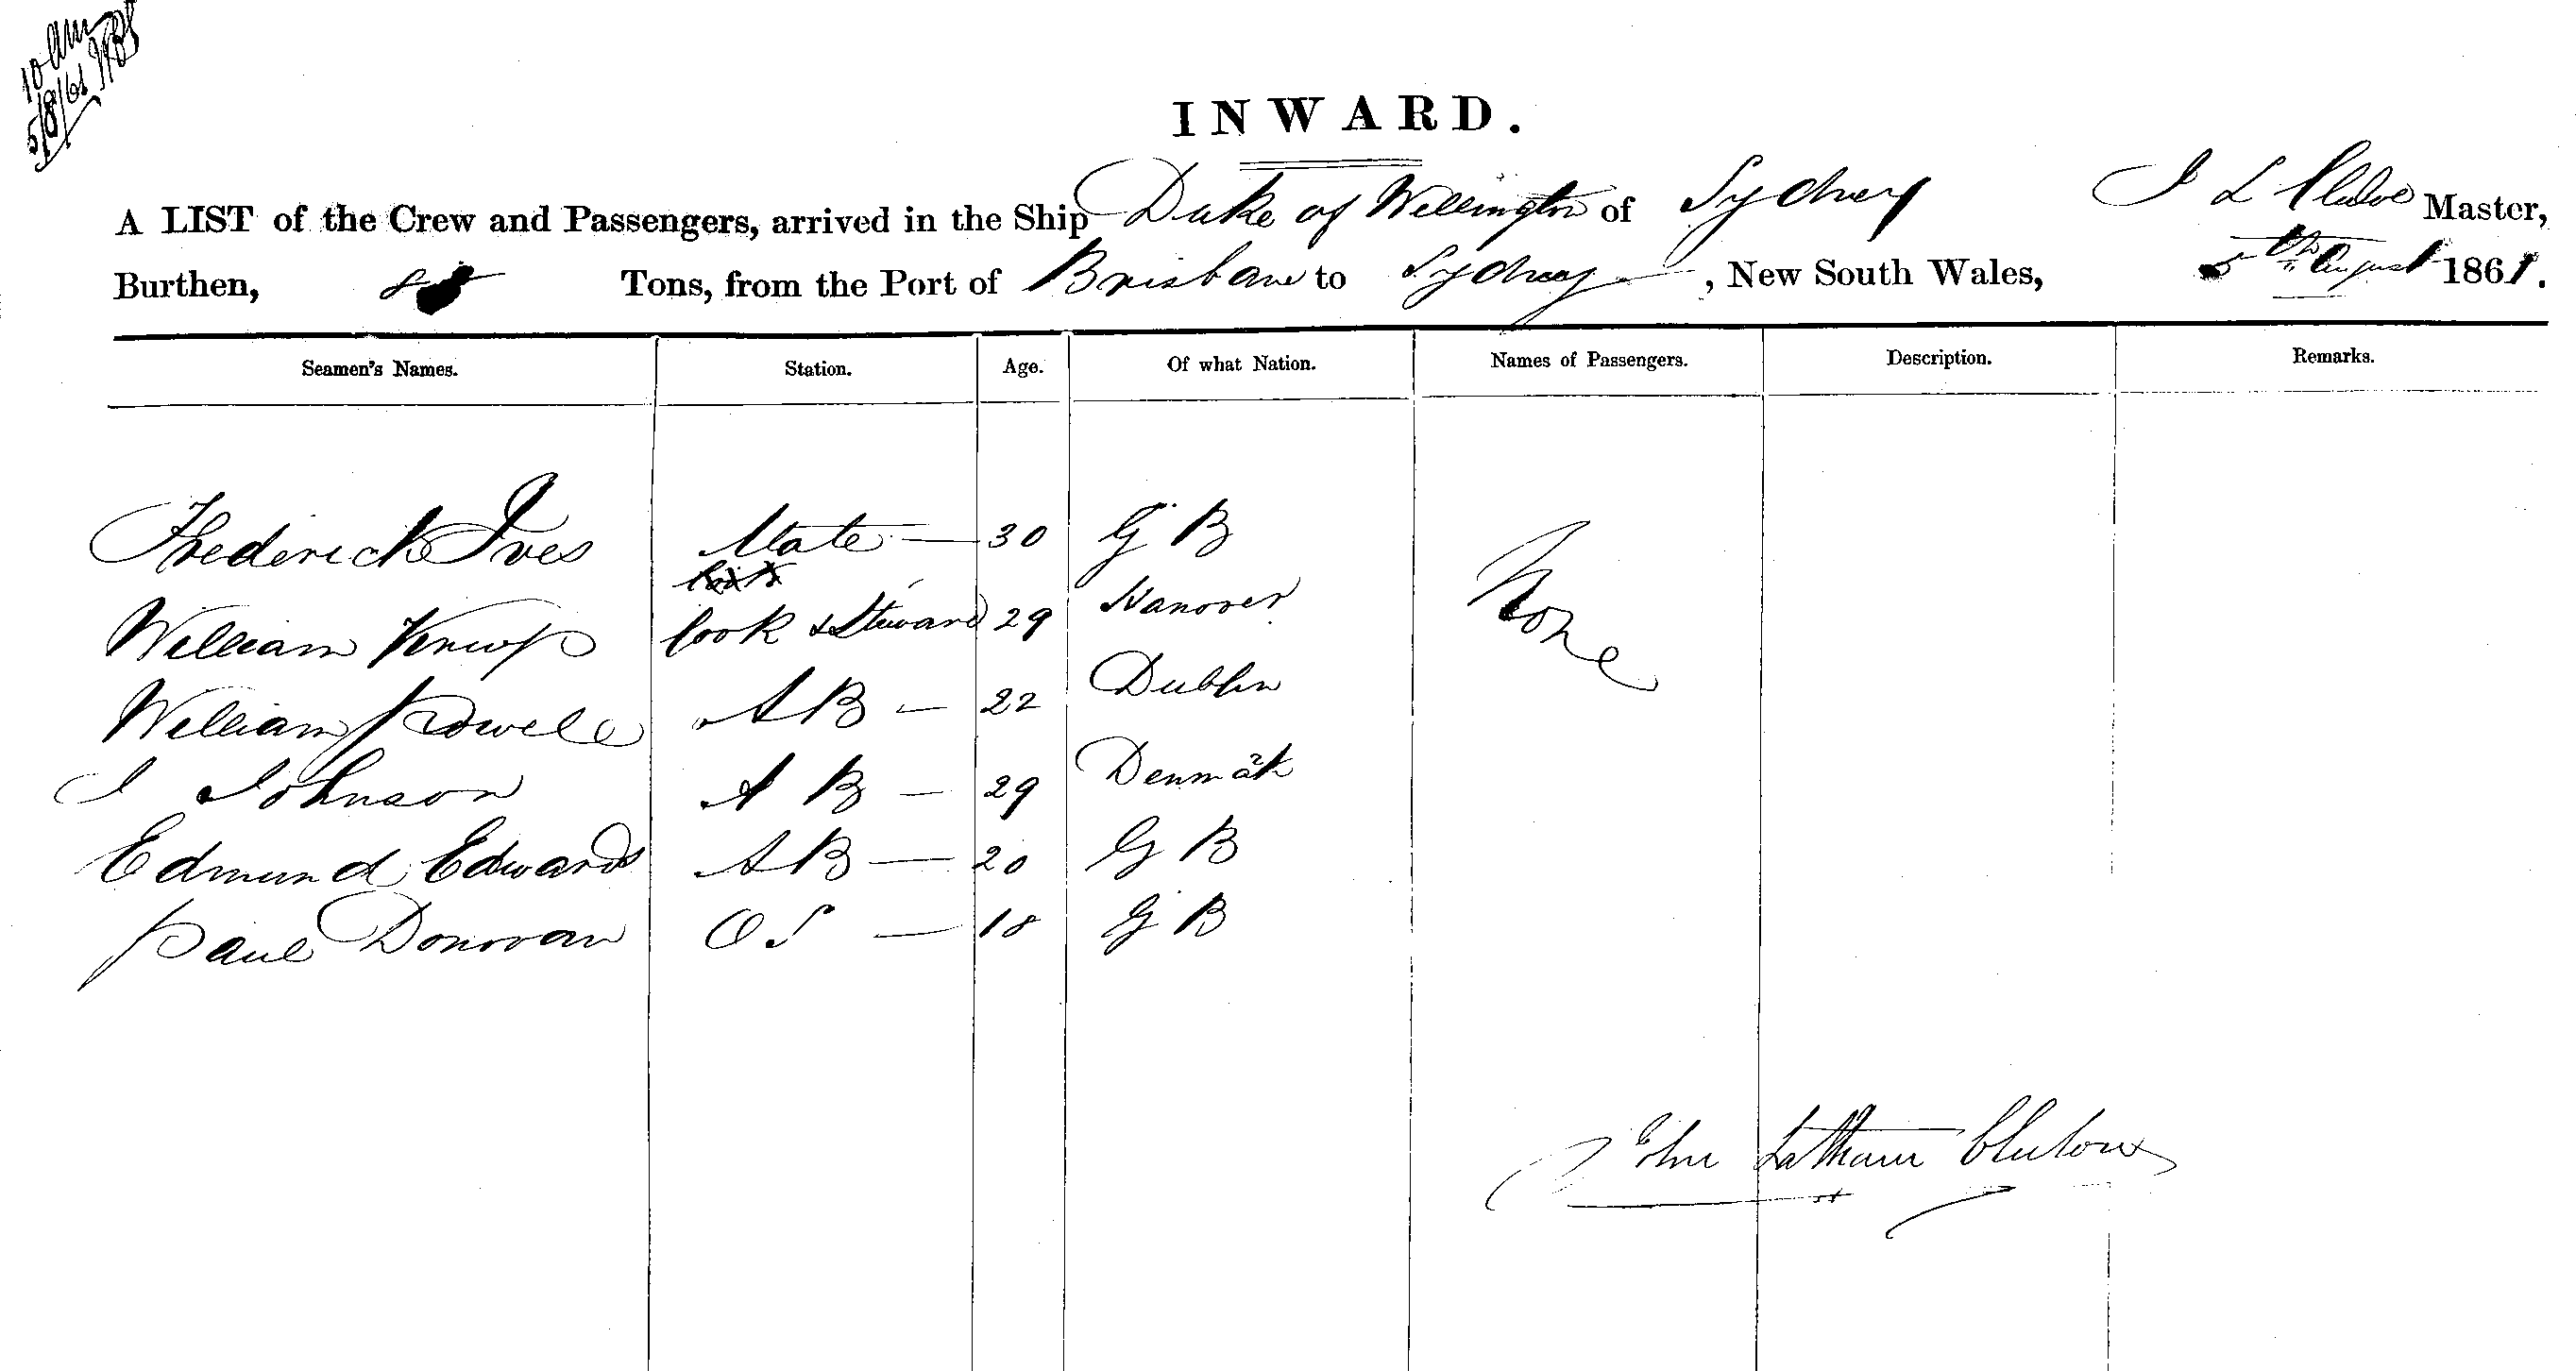 10 am
5/8/61
INWARD.
A LIST of the Crew and Passengers, arrived in the Ship Duke of Wellington of Sydney J L Master,
Burthen, Tons, from the Port of Brisbane to Sydney, New South Wales, 5th August 1861.
Seamen's Names. Station. Age. Of what Nation. Names of Passengers. Description. Remarks.
Frederick Ives Mate — 30 G B None
William Cook & Steward 29 Hanover
William Powell A B — 22 Dublin
J Johnson A B — 29 Denmark
Edmund Edwards A B — 20 G B
Paul Donovan O S — 18 G B
John Latham